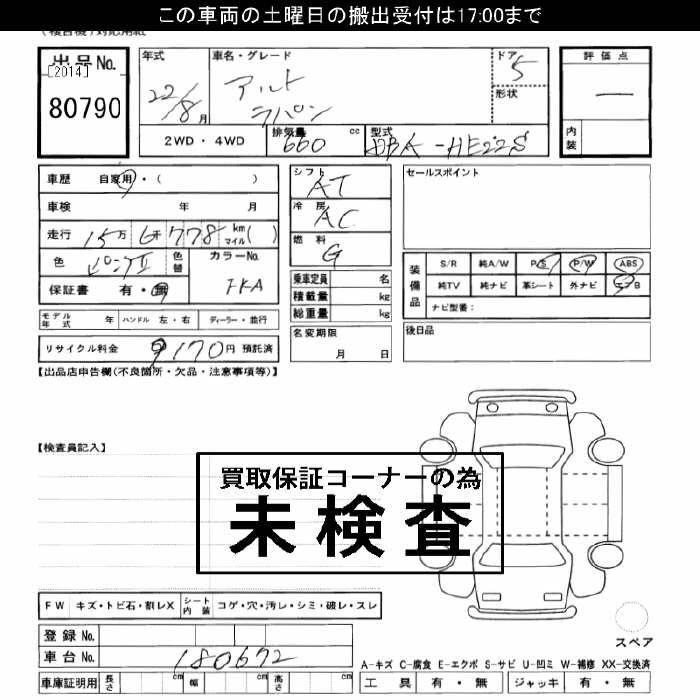 この車両の土曜日の搬出受付は17:00まで
出品No.
[2014]
80790
年式
22/8月
車名・グレード
アルト
ラパン
ドア
5
形状
評価点
―
内装
2WD・4WD
排気量
660
cc
型式
DBA-HE22S
車歴 自家用・( )
車検 年 月
走行 15万6千778kmマイル( )
色 ピンクII 色替
カラーNo.
保証書 有・無
シフト
AT
冷房
AC
燃料
G
乗車定員 名
積載量 kg
総重量 kg
セールスポイント
装備品
S/R 純A/W P/S P/W ABS
純TV 純ナビ 革シート 外ナビ エアB
ナビ型番:
モデル年式 年 ハンドル 左・右 ディーラー・並行
リサイクル料金 9170円 預託済
名変期限
月 日
後日品
【出品店申告欄(不良箇所・欠品・注意事項等)】
【検査員記入】
買取保証コーナーの為
未検査
FW キズ・トビ石・割レX シート内装 コゲ・穴・汚レ・シミ・破レ・スレ
登録No.
車台No. 180672
スペア
A-キズ C-腐食 E-エクボ S-サビ U-凹ミ W-補修 XX-交換済
車庫証明用 長さ cm 幅 cm 高さ cm
工具 有・無 ジャッキ 有・無